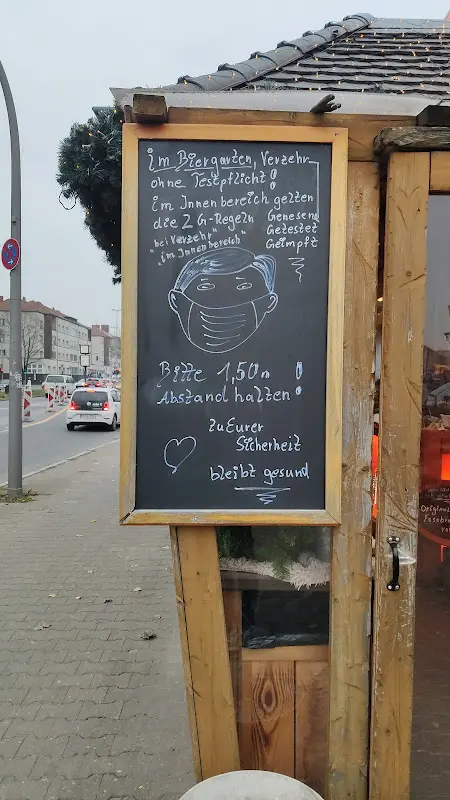 im Biergarten, Verzehr
ohne Testpflicht!
im Innenbereich gelten
die 2 G-Regeln
Genesen
Getestet
Geimpft
bei Verzehr"
"im Innenbereich"
Bitte 1,50m
Abstand halten!
Zu Eurer
Sicherheit
bleibt gesund
Original